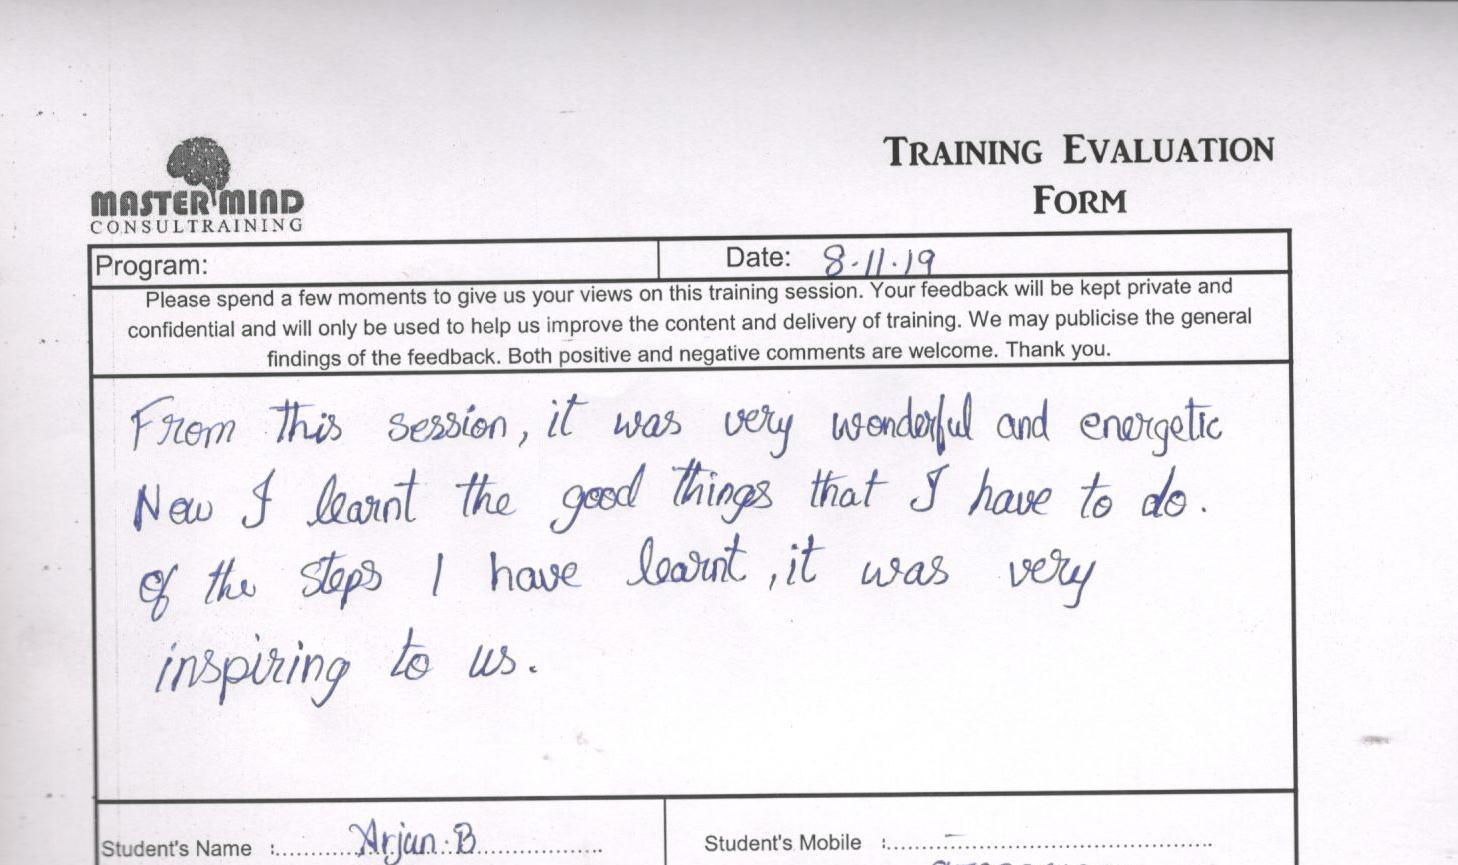 TRAINING EVALUATION
FORM
MASTER MIND
CONSULTRAINING
Program:
Date: 8.11.19
Please spend a few moments to give us your views on this training session. Your feedback will be kept private and
confidential and will only be used to help us improve the content and delivery of training. We may publicise the general
findings of the feedback. Both positive and negative comments are welcome. Thank you.
From this session, it was very wonderful and energetic
Now I learnt the good things that I have to do.
of the steps I have learnt, it was very
inspiring to us.
Student's Name :.............Arjun.B......................
Student's Mobile :......................................................